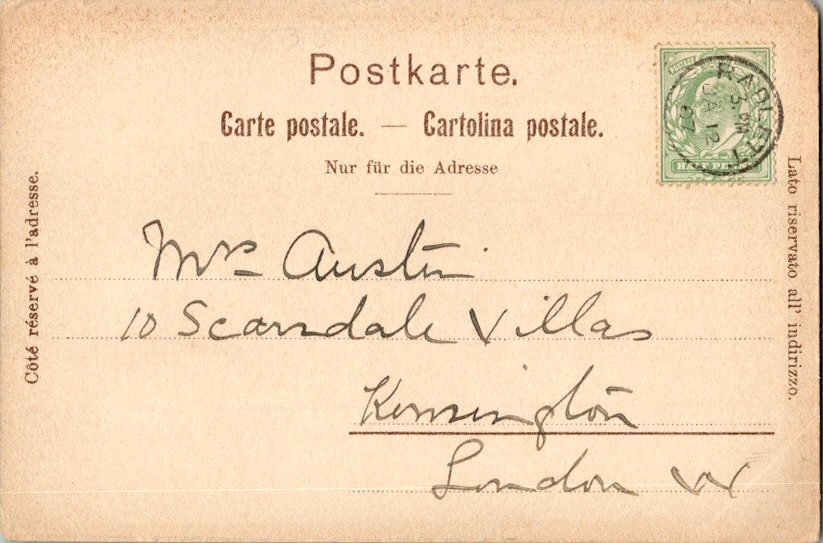 Postkarte.
Carte postale. — Cartolina postale.
Nur für die Adresse
Côté réservé à l'adresse.
Lato riservato all' indirizzo.
HALF PENNY
RADLETT
3. PM
JA 12
07
Mrs Austin
10 Scarsdale Villas
Kensington
London W